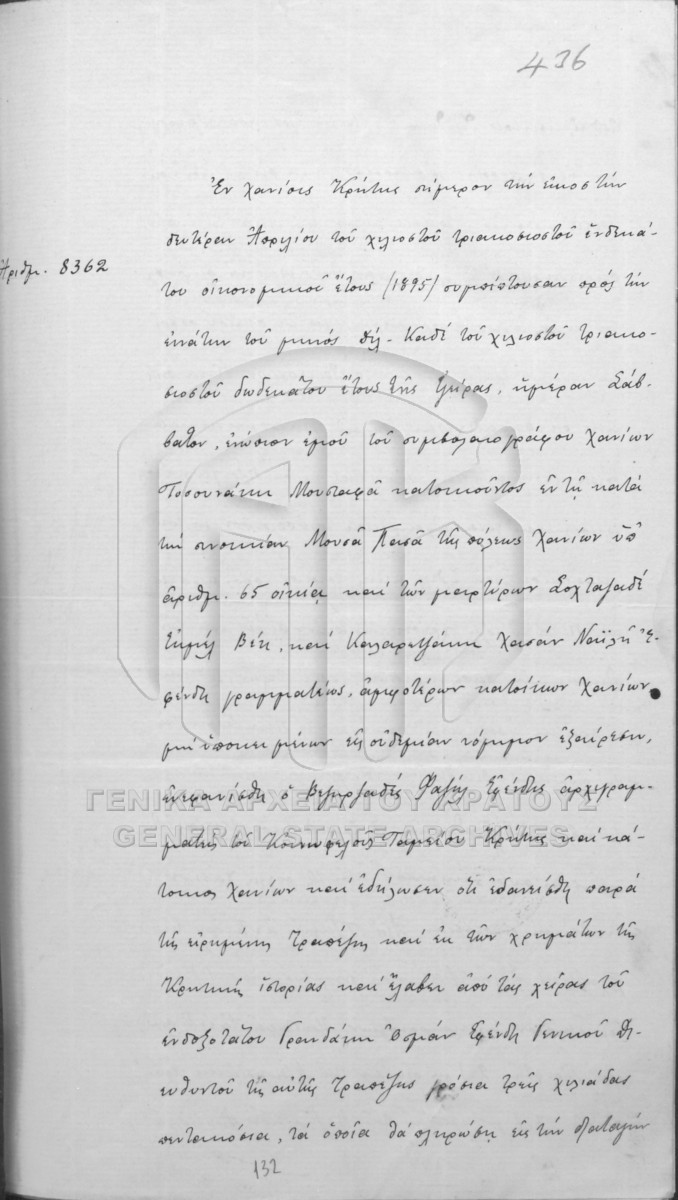 436
Ἐν Χανίοις Κρήτης σήμερον τὴν εἰκοστὴν
δευτέραν Ἀπριλίου τοῦ χιλιοστοῦ τριακοσιοστοῦ ἑνδεκά-
Ἀριθμ. 8362
του οἰκονομικοῦ ἔτους (1895) συμπίπτουσαν πρὸς τὴν
ἐννάτην τοῦ μηνὸς Ζήλ-Καδὲ τοῦ χιλιοστοῦ τριακο-
σιοστοῦ δωδεκάτου ἔτους τῆς Ἐγείρας, ἡμέραν Σάβ-
βατον, ἐνώπιον ἐμοῦ τοῦ συμβολαιογράφου Χανίων
Τοσουνάκη Μουσταφᾶ κατοικοῦντος ἐν τῇ κατὰ
τὴν συνοικίαν Μουσᾶ Πασᾶ τῆς πόλεως Χανίων ὑπ'
ἀριθμ. 65 οἰκίᾳ καὶ τῶν μαρτύρων Σοχταζαδὲ
Βέη, καὶ Καλαρετζάκη Χασὰν Ναϊλῆ Ἐ-
φένδη γραμματέως, ἀμφοτέρων κατοίκων Χανίων
μὴ ὑποκειμένων εἰς οὐδεμίαν νόμιμον ἐξαίρεσιν,
ἐνεφανίσθη ὁ Βεζυρζαδὲς Φαζὴλ Ἐφένδης ἀρχιγραμ-
ματεὺς τοῦ Κοινωφελοῦς Ταμείου Κρήτης καὶ κά-
τοικος Χανίων καὶ ἐδήλωσεν ὅτι ἐδανείσθη παρὰ
τῆς εἰρημένης Τραπέζης καὶ ἐκ τῶν χρημάτων τῆς
Κρητικῆς ἱστορίας καὶ ἔλαβεν ἀπὸ τὰς χεῖρας τοῦ
ἐνδοξοτάτου Γρανδάκη Ὀσμὰν Ἐφένδη Γενικοῦ Δι-
ευθυντοῦ τῆς αὐτῆς Τραπέζης γρόσια τρεῖς χιλιάδας
πεντακόσια, τὰ ὁποῖα θὰ πληρώσῃ εἰς τὴν διαταγὴν
132
ΓΕΝΙΚΑ ΑΡΧΕΙΑ ΤΟΥ ΚΡΑΤΟΥΣ
GENERAL STATE ARCHIVES